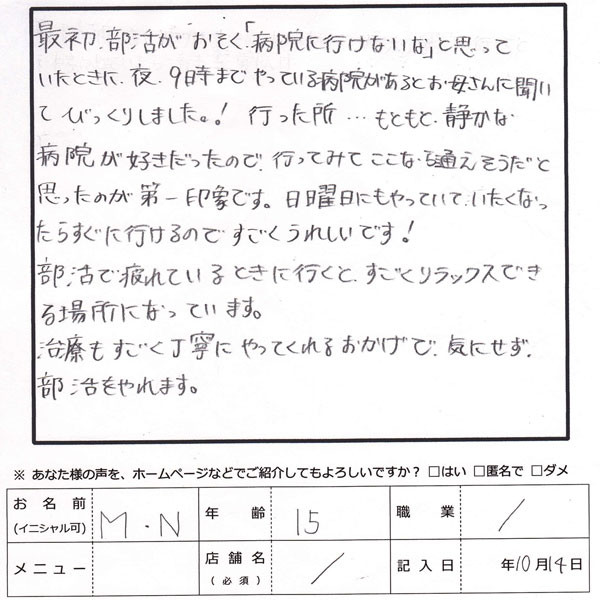 最初、部活がおそく「病院に行けないな」と思って
いたときに、夜、9時までやっている病院があるとお母さんに聞い
てびっくりしました。! 行った所…もともと、静かな
病院が好きだったので、行ってみてここなら通えそうだと
思ったのが第一印象です。日曜日にもやっていて、いたくなっ
たらすぐに行けるのですごくうれしいです!
部活で疲れているときに行くと、すごくリラックスでき
る場所になっています。
治療もすごく丁寧にやってくれるおかげで、気にせず、
部活をやれます。
※ あなた様の声を、ホームページなどでご紹介してもよろしいですか? □はい □匿名で □ダメ
お名前 (イニシャル可) M・N 年齢 15 職業 /
メニュー 店舗名 (必須) / 記入日 年10月14日